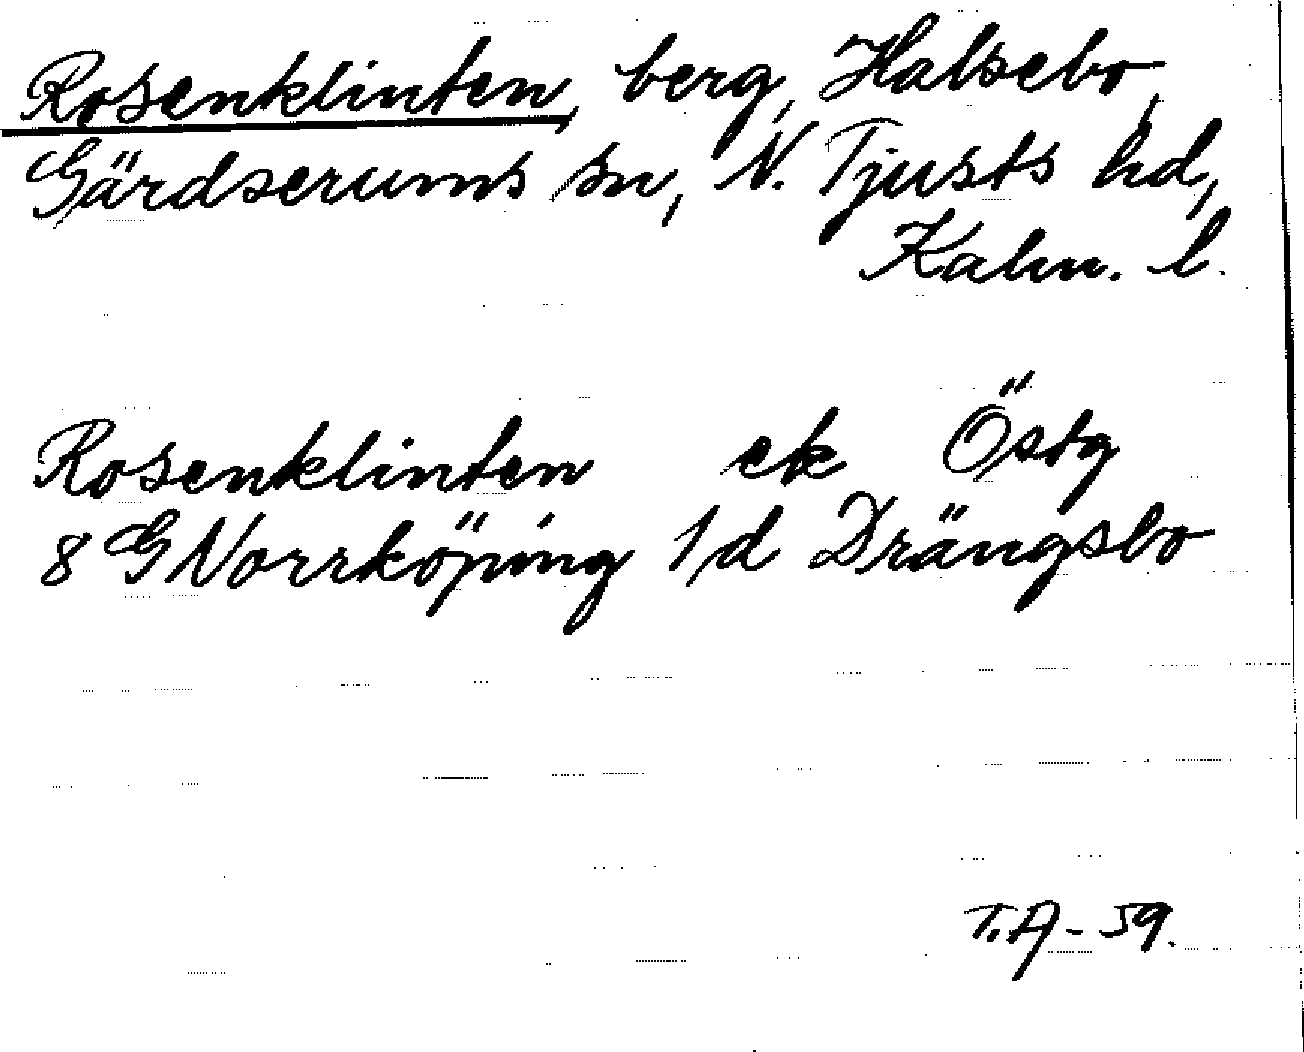 Rosenklinten, berg, Halsebo,
Gärdserums sn, N. Tjusts hd,
Kalm. l.
Rosenklinten ek Östg
8 G Norrköping 1/d Drängsbo
T.A-59.